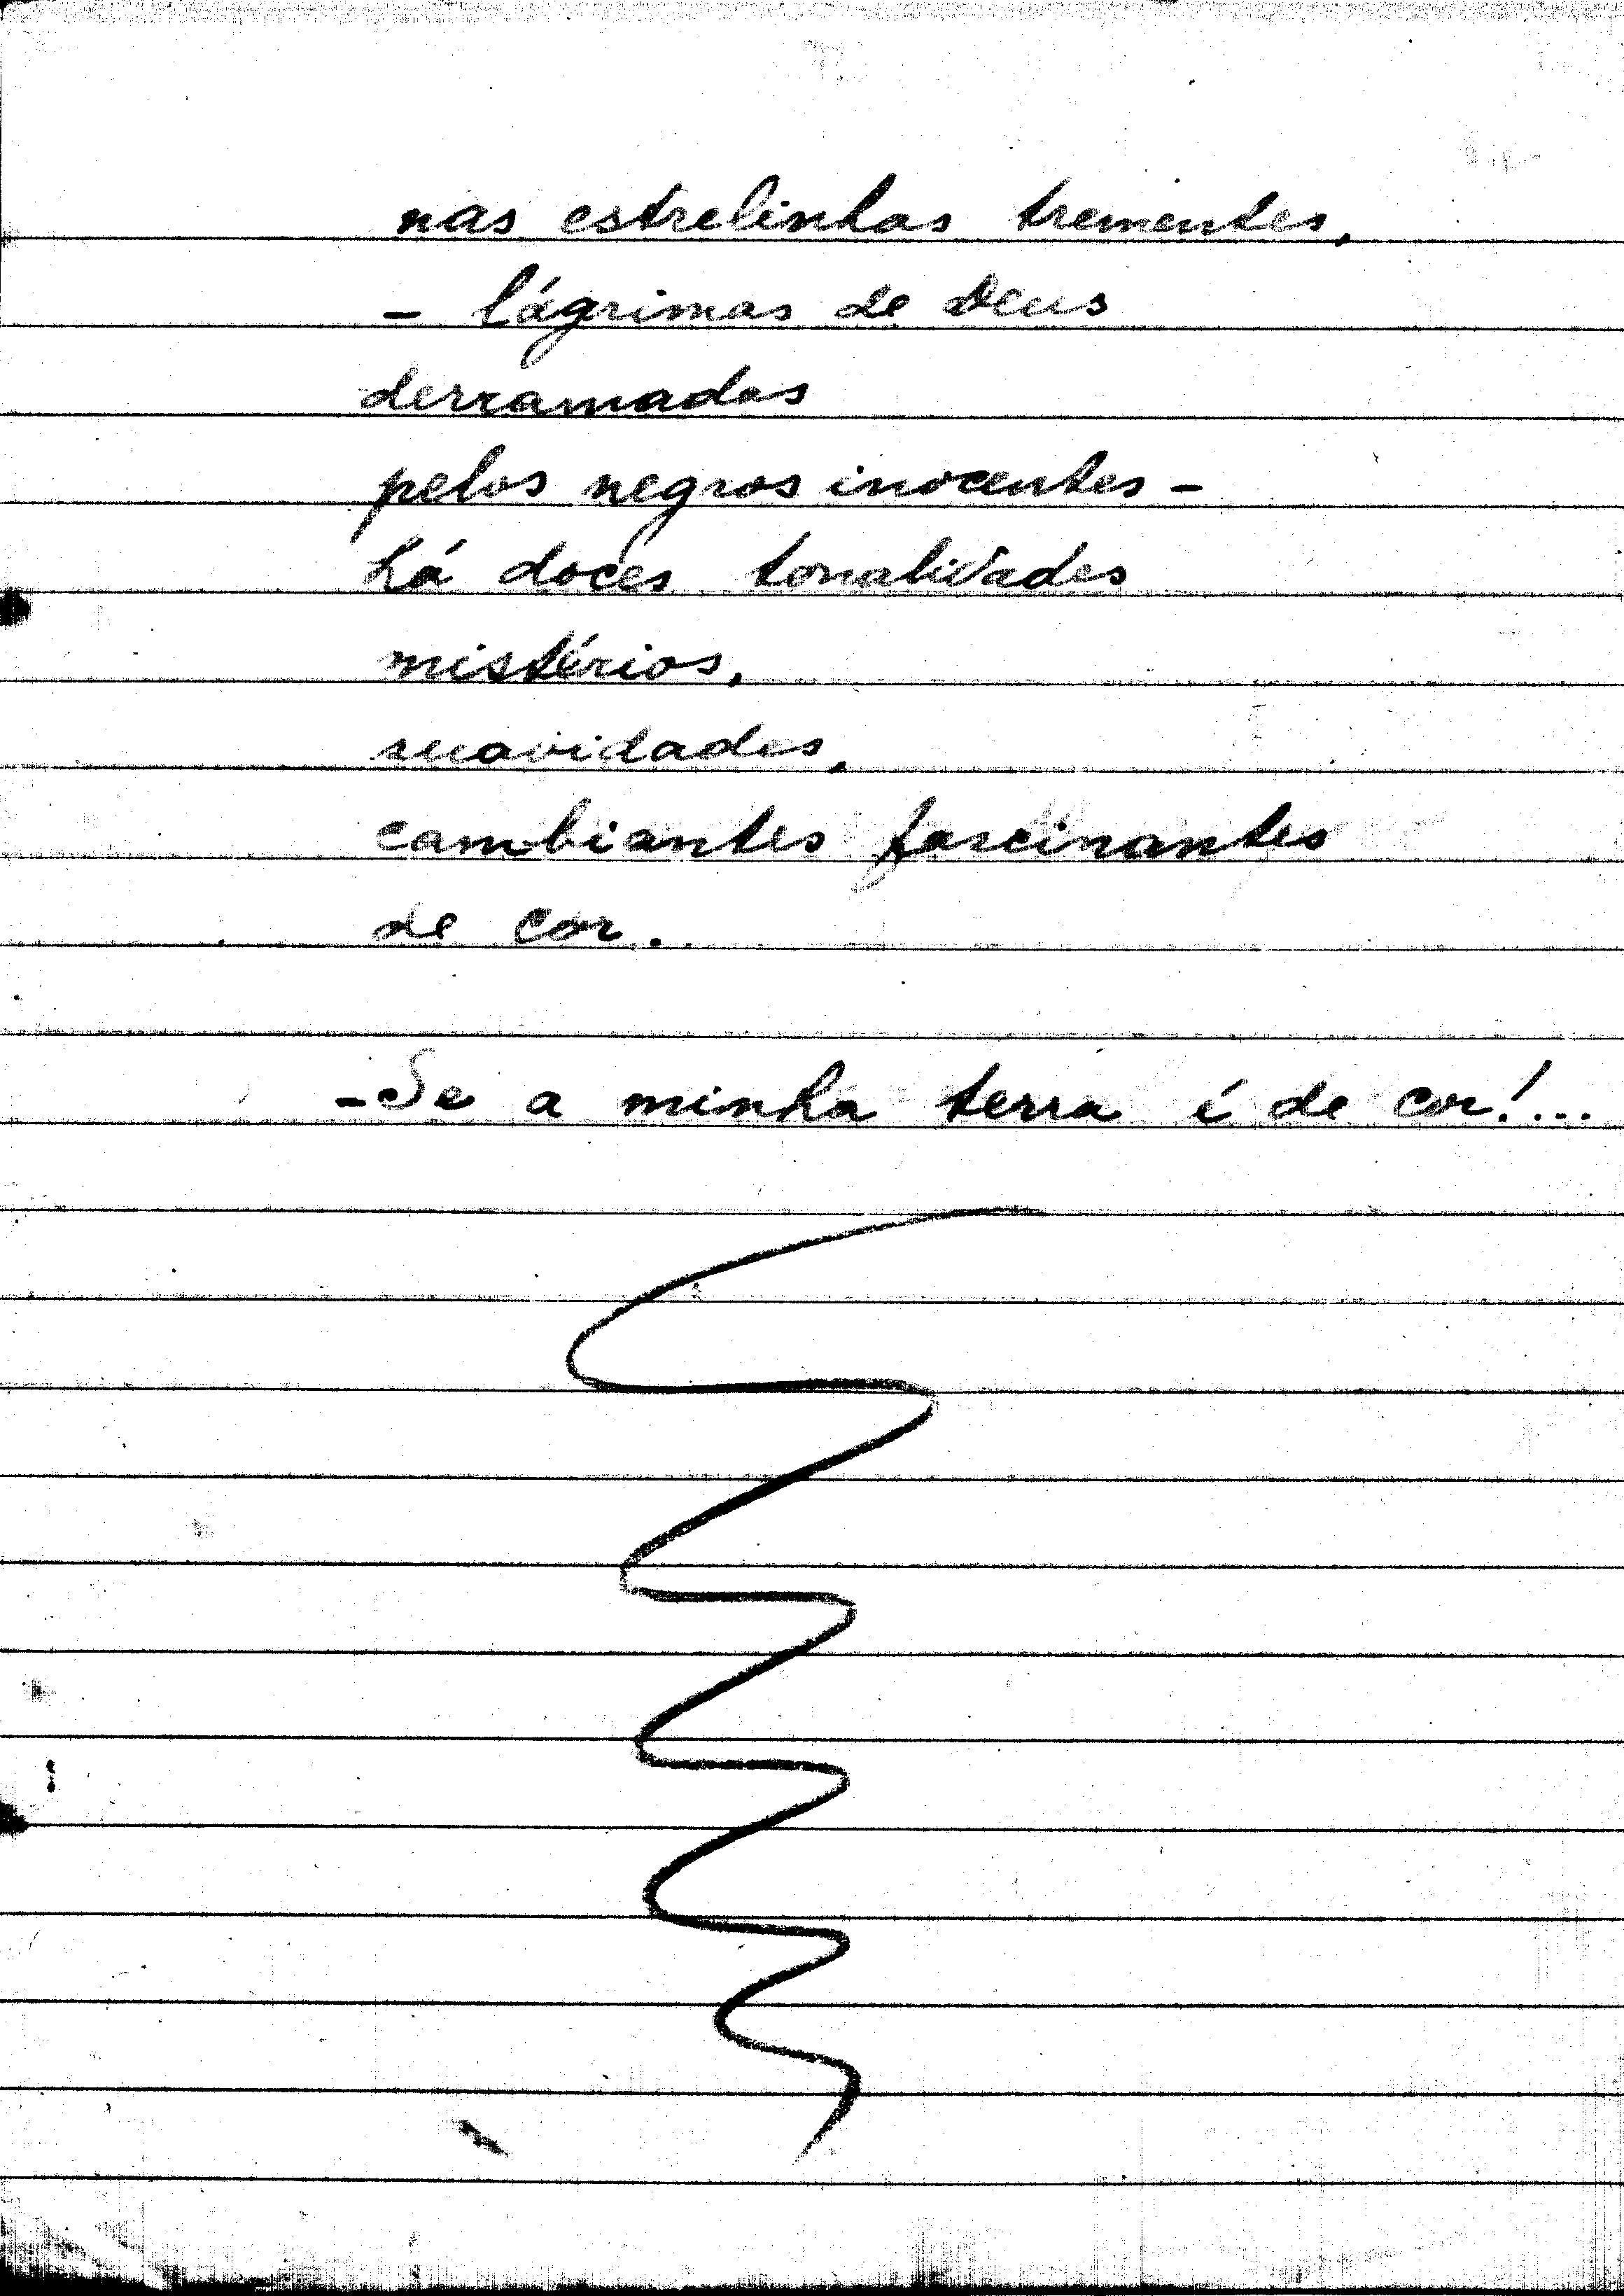 nas estrelinhas trementes,
- lágrimas de Deus
derramadas
pelos negros inocentes -
há doces tonalidades
mistérios,
suavidades,
cambiantes fascinantes
de cor.
- Se a minha terra é de cor!...